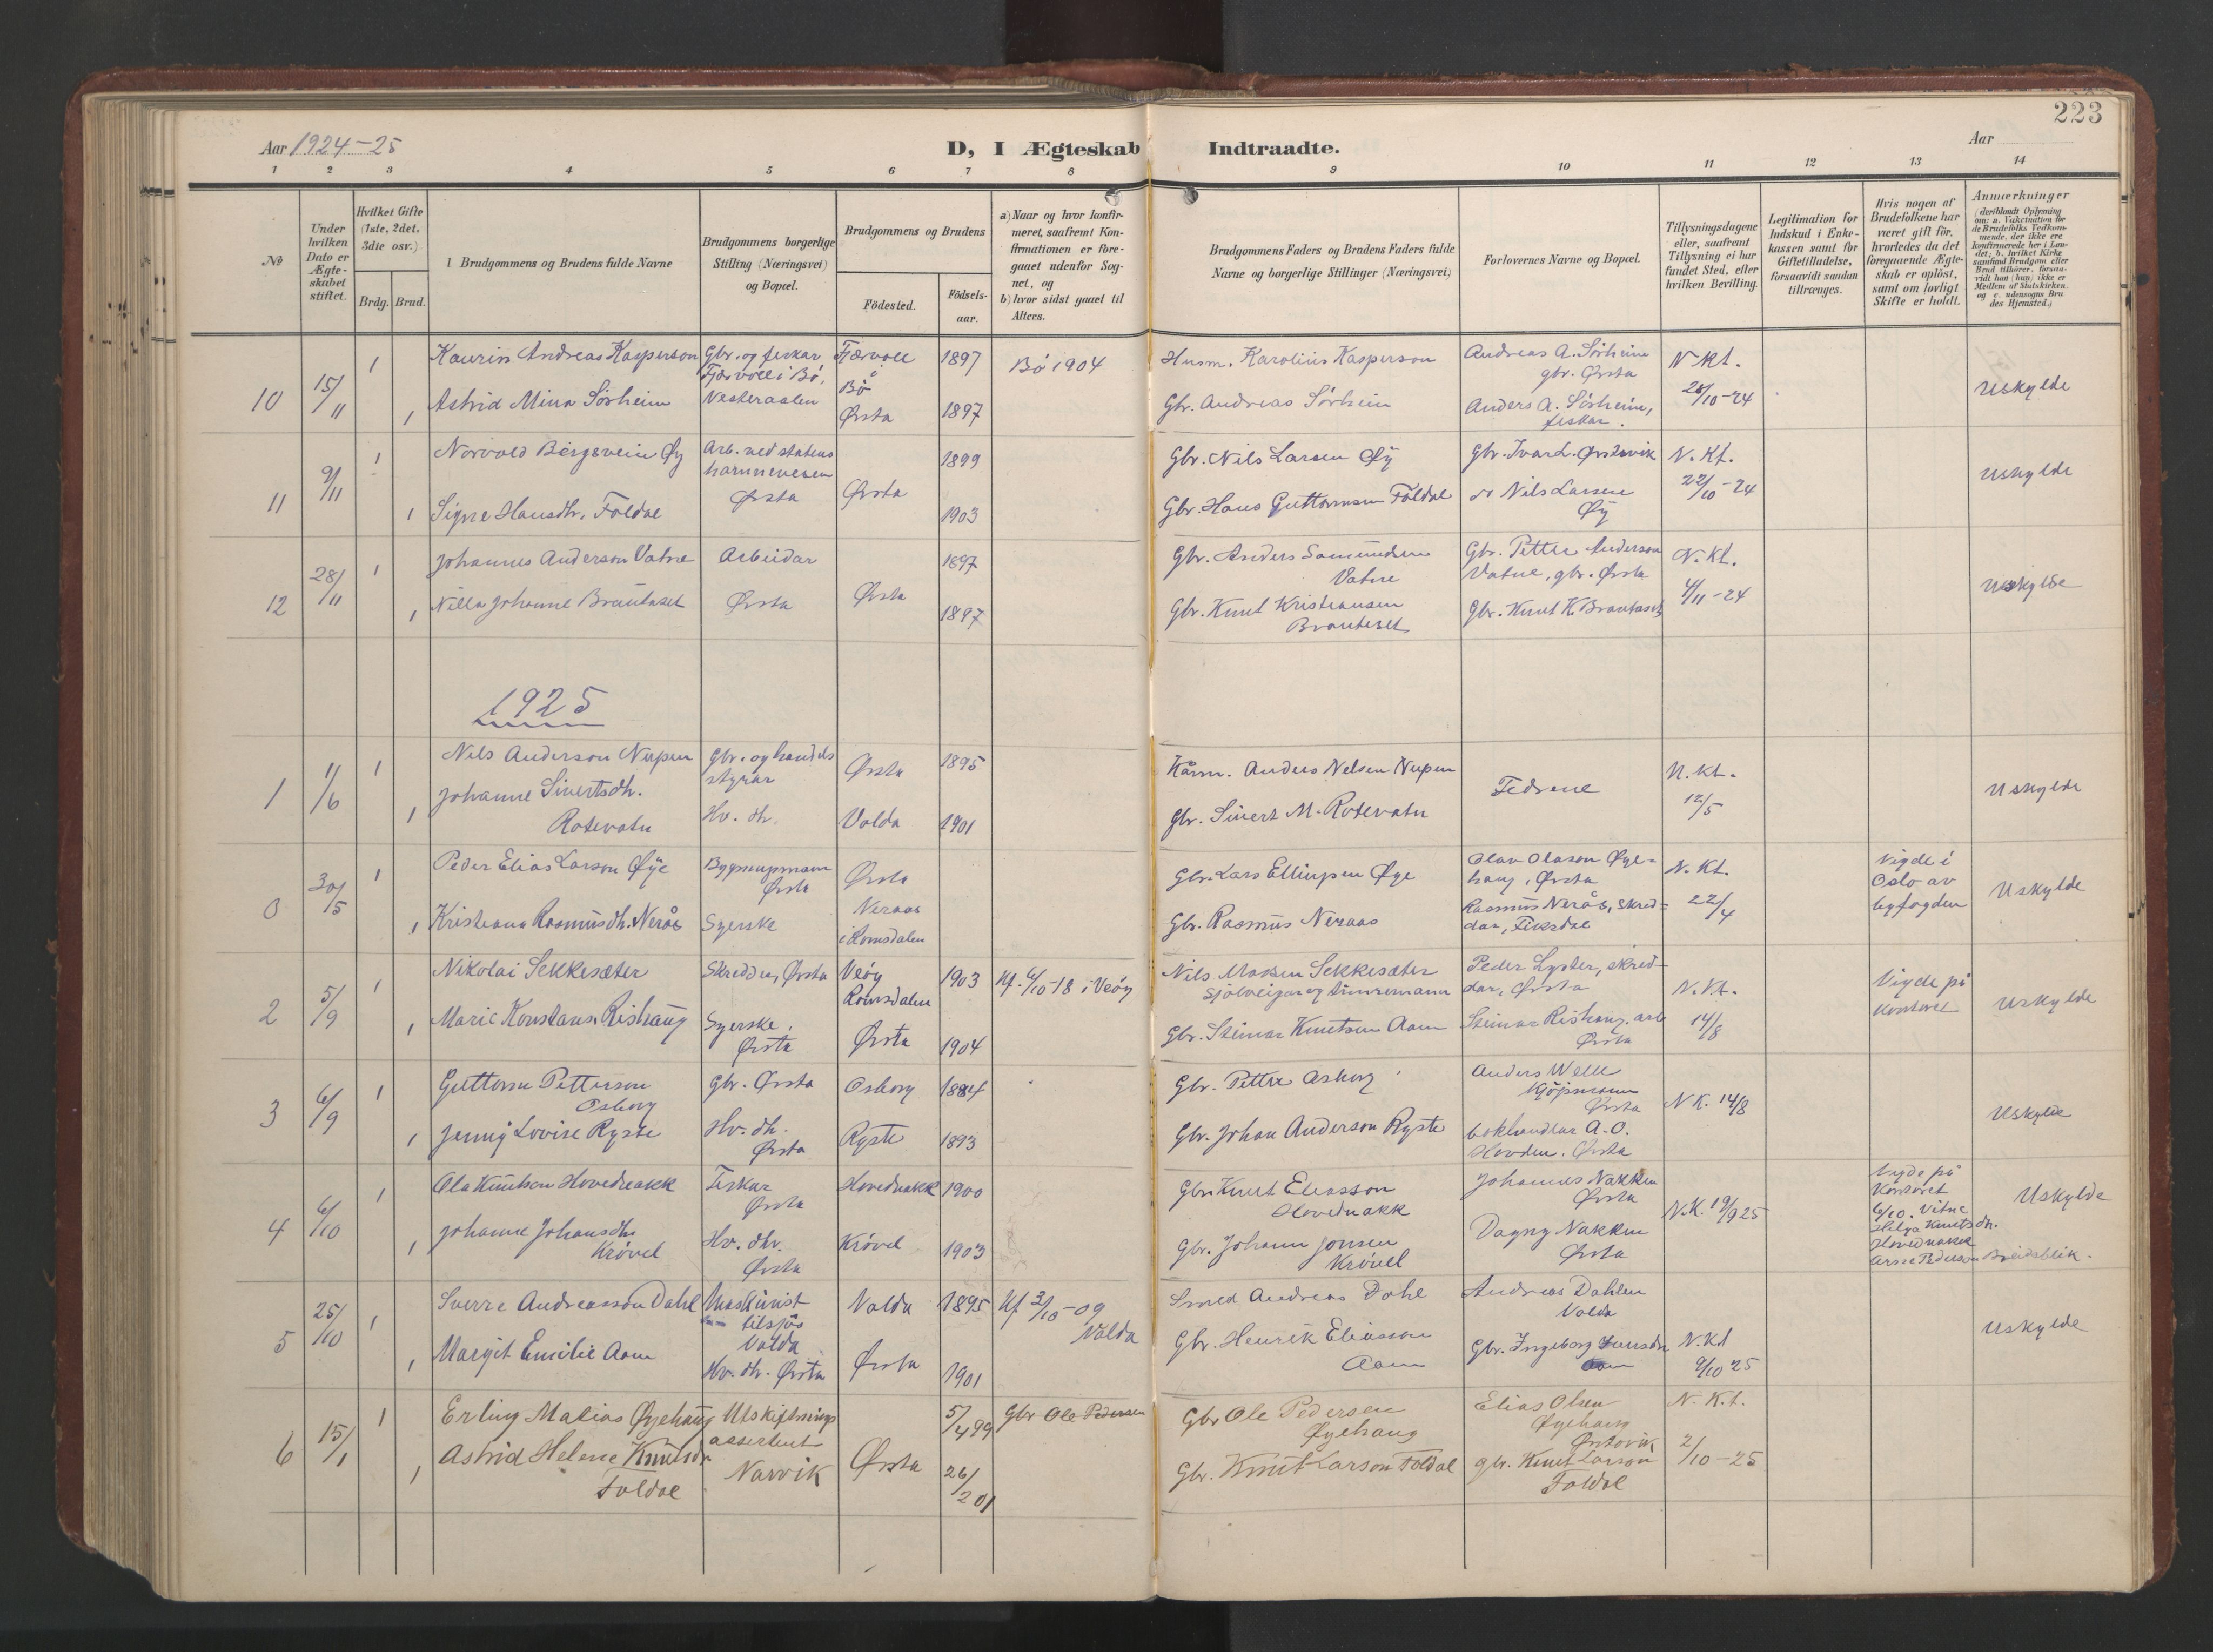 223
Aar 1924-25
D, I Ægteskab Indtraadte.
Aar
1 2 3 4 5 6 7 8 9 10 11 12 13 14
No
Under hvilken Dato er Ægteskabet stiftet.
Hvilket Gifte (1ste, 2det, 3die osv.)
Brdg. Brud.
Brudgommens og Brudens fulde Navne
Brudgommens borgerlige Stilling (Næringsvei) og Bopæl.
Brudgommens og Brudens
Födested.
Födselsaar.
a) Naar og hvor konfirmeret, saafremt Konfirmationen er foregaaet udenfor Sognet, og
b) hvor sidst gaaet til Alters.
Brudgommens Faders og Brudens Faders fulde Navne og borgerlige Stillinger (Næringsvei)
Forlovernes Navne og Bopæl.
Tillysningsdagene eller, saafremt Tillysning ei har fundet Sted, efter hvilken Bevilling.
Legitimation for Indskud i Enkekassen samt for Giftetilladelse, forsaavidt saadan tiltrænges.
Hvis nogen af Brudefolkene har været gift för, hvorledes da det foregaaende Ægteskab er oplöst, samt om lovligt Skifte er holdt.
Anmærkninger
(deriblandt Oplysning om: a. Vakcination for de Brudefolks Vedkommende, der ikke ere konfirmerede her i Landet; b. hvilket Kirkesamfund Brudgom eller Brud tilhörer, forsaavidt han (hun) ikke er Medlem af Statskirken, og c. udensogns Brudes Hjemsted.)
10 15/11 1 Kaurin Andreas Kasperson Gbr. og fiskar Fjærvoll i Bö, Vesteraalen Fjærvoll Bö 1897 Bö 1904 Husm. Karolius Kasperson Andreas A. Sörheim gbr. Ørsta N. Kt. 28/10-24 Uskylde
1 Astrid Mina Sörheim Ørsta 1897 Gbr. Andreas Sörheim Anders A. Sörheim, fiskar.
11 9/11 1 Norvald Bergsvein Øy Arb. ved statens hamnevesen Ørsta Ørsta 1899 Gbr. Nils Larsen Øy Gbr. Ivar L. Ørstavik N. Kt. 22/10-24 Uskylde
1 Signe Hansdtr. Foldal 1903 Gbr. Hans Guttormsen Foldal do Nils Larsen Øy
12 28/11 1 Johannes Anderson Vatne Arbeidar Ørsta Ørsta 1897 Gbr. Anders Samundsen Vatne Gbr. Petter Anderson Vatne, gbr. Ørsta N. Kt. 4/11-24 Uskylde
1 Nilla Johanne Brautaset 1897 Gbr. Knut Kristiansen Brauteset Gbr. Knut K Brautaset
1925
1 1/6 1 Nils Anderson Nupen Gbr. og handelsstyrar Ørsta 1895 Kårm. Anders Nelsen Nupen Fedrene N. Kt. 12/5 Uskylde
1 Johanne Sivertsdtr. Rotevatn Hv. dtr. Volda 1901 Gbr. Sivert M. Rotevatn
0 30/5 1 Peder Elias Larson Øye Ørsta Ørsta Gbr. Lars Ellingsen Øye Olav Olason Øyehaug, Ørsta N. Kt. 22/4 Vigde i Oslo av byfogden Uskylde
1 Kristiana Rasmusdtr. Nerås Syerske Neraas i Romsdalen Gbr. Rasmus Neraas Rasmus Nerås, skreddar, Fiksdal
2 5/9 1 Nikolai Sekkesæter Skreddar, Ørsta Veöy Romsdalen 1903 Kf. 6/10-18 i Veöy Nils Sekkesæter Sjölveigar og timmermann Peder Lyster, skreddar, Ørsta N. Kt. 14/8 Vigde på kontoret Uskylde
1 Marie Konstanse Rishaug Syerske, Ørsta Ørsta 1904 Gbr. Steinar Knutsen Aam Steinar Rishaug, arb Ørsta
3 6/9 1 Guttorm Petterson Osborg Gbr. Ørsta Osborg 1884 Gbr. Petter Osborg Anders Welle kjöpmann Ørsta N. K. 14/8 Uskylde
1 Jenny Lovise Ryste Hv. dtr. Ørsta Ryste 1893 Gbr. Johan Anderson Ryste bokhandlar A. O. Hovden. Ørsta
4 6/10 1 Ola Knutson Hovednakk Fiskar Ørsta Hovednakk 1900 Gbr. Knut Eliasson Hovednakk Johannes Nakken Ørsta N. K. 19/9 25 Vigde på Kontoret 6/10. Vitne Helga Knutsdtr. Hovednakk Arne Pederson Breidablik. Uskylde
1 Johanne Johansdtr. Krövel Hv. dtr. Ørsta Krövel 1903 Gbr. Johann Jonsen Krövel Dagny Nakken Ørsta
5 25/10 1 Sverre Andreasson Dahl Maskinist tilsjös Volda Volda 1895 Kf 3/10-09 Volda Smed Andreas Dahl Andreas Dahlen Volda N. Kt 9/10 25 Uskylde
1 Margit Emilie Aam Hv. dtr. Ørsta Ørsta 1901 Gbr. Henrik Eliasson Aam Gbr. Ingeborg Aam
6 15/1 1 Erling Matias Øyehaug Utskiftningsassistent Narvik Ørsta 5/4 99 Gbr Ole Pedersen Gbr Ole Pedersen Øyehaug Elias Olsen Øyehaug Ørstavik N. K.t. 2/10-25
1 Astrid Helene Knutsdr Foldal 26/2 01 Gbr. Knut Larson Foldal gbr. Knut Larson Foldal